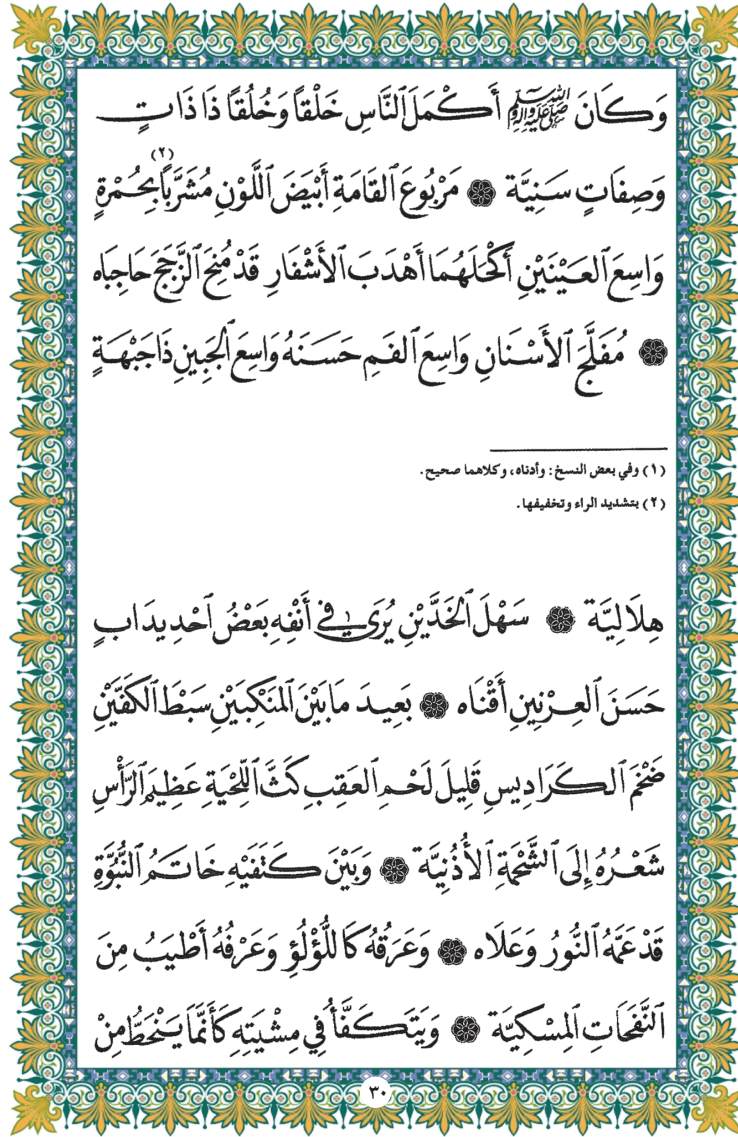 وَكَانَ ﷺ أَكْمَلَ ٱلنَّاسِ خَلْقاً وَخُلُقاً ذَا ذَاتٍ
وَصِفَاتٍ سَنِيَّة ۞ مَرْبُوعَ ٱلقَامَةِ أَبْيَضَ ٱللَّوْنِ مُشَرَّباً(٢) بِحُمْرَةٍ
وَاسِعَ ٱلعَيْنَيْنِ أَكْحَلَهُمَا أَهْدَبَ ٱلأَشْفَارِ قَدْ مُنِحَ ٱلزَّجَجَ حَاجِبَاه
۞ مُفَلَّجَ ٱلأَسْنَانِ وَاسِعَ ٱلفَمِ حَسَنَهُ وَاسِعَ ٱلجَبِينِ ذَا جَبْهَةٍ
(١) وفي بعض النسخ: وأدناه، وكلاهما صحيح.
(٢) بتشديد الراء وتخفيفها.
هِلَالِيَّة ۞ سَهْلَ ٱلخَدَّيْنِ يُرَى فِي أَنْفِهِ بَعْضُ ٱحْدِيدَابٍ
حَسَنَ ٱلعِرْنِينِ أَقْنَاه ۞ بَعِيدَ مَا بَيْنَ ٱلمَنْكِبَيْنِ سَبْطَ ٱلكَفَّيْنِ
ضَخْمَ ٱلكَرَادِيسِ قَلِيلَ لَحْمِ ٱلعَقِبِ كَثَّ ٱللِّحْيَةِ عَظِيمَ ٱلرَّأْسِ
شَعْرُهُ إِلَى ٱلشَّحْمَةِ ٱلأُذُنِيَّة ۞ وَبَيْنَ كَتَفَيْهِ خَاتَمُ ٱلنُّبُوَّةِ
قَدْ عَمَّهُ ٱلنُّورُ وَعَلَاه ۞ وَعَرَقُهُ كَاللُّؤْلُؤِ وَعَرْفُهُ أَطْيَبُ مِنَ
ٱلنَّفَحَاتِ ٱلمِسْكِيَّة ۞ وَيَتَكَفَّأُ فِي مِشْيَتِهِ كَأَنَّمَا يَنْحَطُّ مِنْ
٣٠